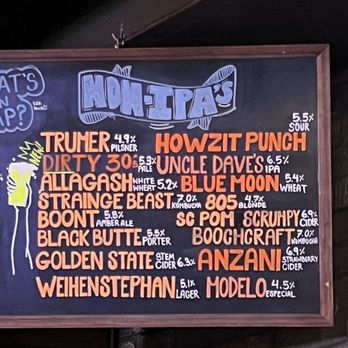 AT'S
ON
AP?
NON-IPA'S
NEW
TRUMER 4.9% PILSNER
HOWZIT PUNCH 5.5% SOUR
DIRTY 30s 5.3% PALE
UNCLE DAVE'S 6.5% IPA
ALLAGASH WHITE WHEAT 5.2
BLUE MOON 5.4% WHEAT
STRAINGE BEAST 7.0% KOMBUCHA
805 4.7% BLONDE
BOONT 5.8% AMBER ALE
SC POM SCRUMPY 6.9% CIDER
BLACK BUTTE 5.5% PORTER
BOOCHCRAFT 7.0% KOMBUCHA
GOLDEN STATE STEM CIDER 6.3%
ANZANI 6.9% STRAWBERRY CIDER
WEIHENSTEPHAN 5.1% LAGER
MODELO 4.5% ESPECIAL